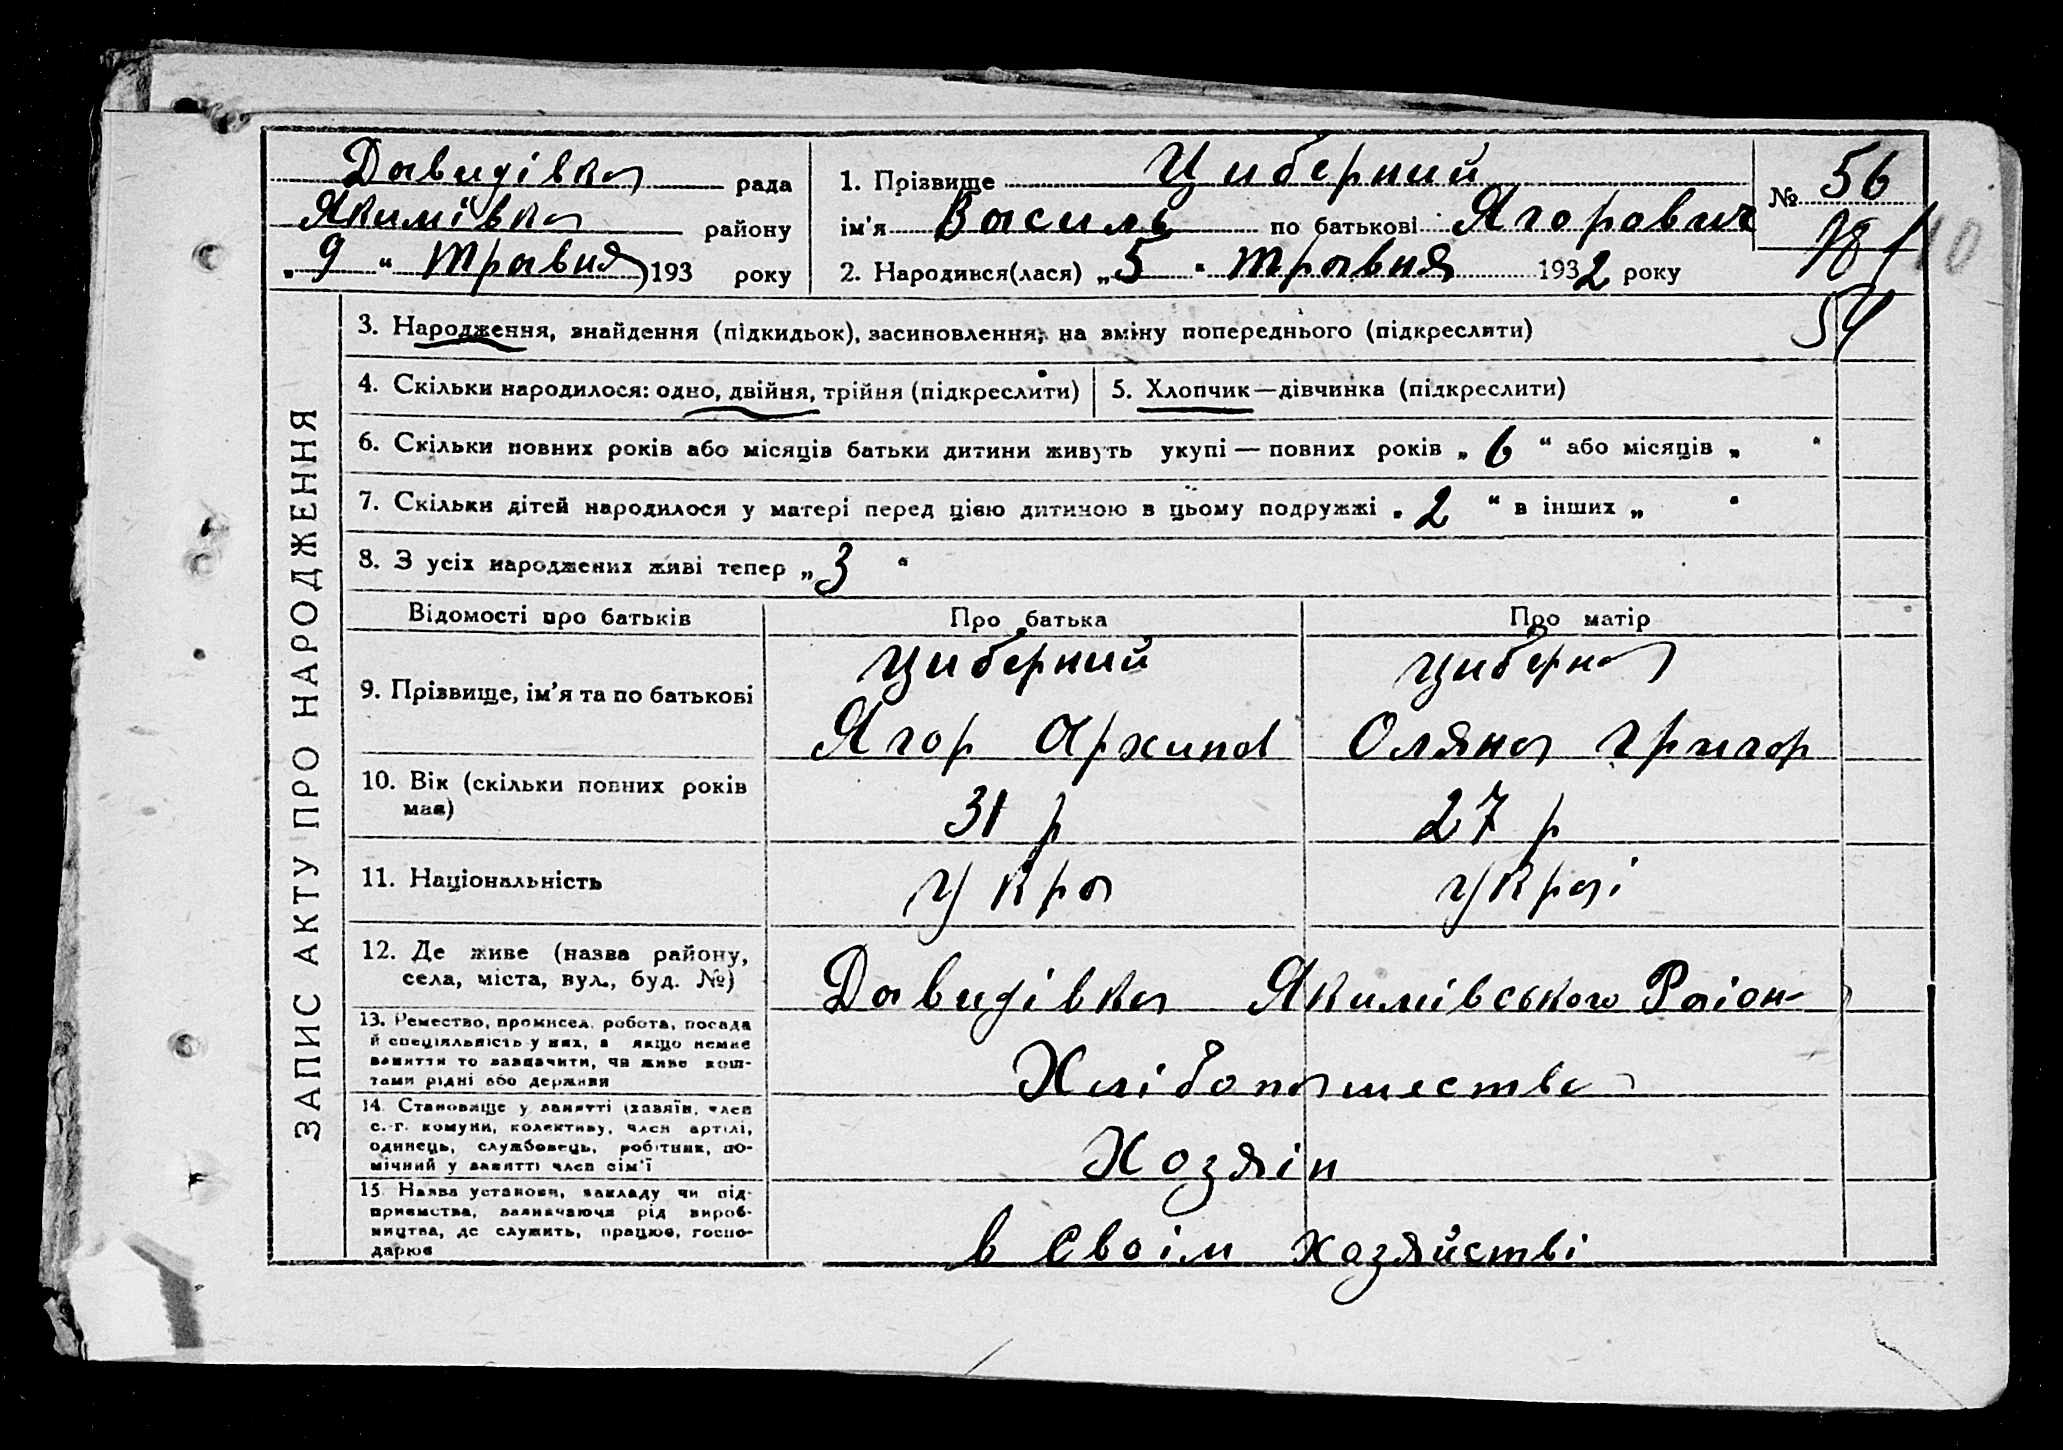 Давидівка рада
Якимівка району
„ 9 “ Травня 193 року
1. Прізвище Циберний
ім'я Василь по батькові Ягорович
2. Народився(лася) „ 5 “ Травня 1932 року
№ 56
54
ЗАПИС АКТУ ПРО НАРОДЖЕННЯ
3. Народження, знайдення (підкидьок), засиновлення, на зміну попереднього (підкреслити)
4. Скільки народилося: одно, двійня, трійня (підкреслити)
5. Хлопчик—дівчинка (підкреслити)
6. Скільки повних років або місяців батьки дитини живуть укупі — повних років „ 6 “ або місяців „ “
7. Скільки дітей народилося у матері перед цією дитиною в цьому подружжі „ 2 “ в інших „ “
8. З усіх народжених живі тепер „ 3 “
Відомості про батьків Про батька Про матір
9. Прізвище, ім'я та по батькові
Циберний
Ягор Архипов
Циберна
Оляна Григор
10. Вік (скільки повних років
має)
31 р
27 р
11. Національність
Укра
Украі
12. Де живе (назва району,
села, міста, вул., буд. №)
Давидівка Якимівського Раіон
13. Ремество, промисел, робота, посада
й спеціяльність у них, а якщо немає
заняття то зазначити, чи живе кош-
тами рідні або держави
Хлібопашество
14. Становище у занятті (хазяїн, член
с.-г. комуни, колективу, член артілі,
одинець, службовець, робітник, по-
мічний у занятті член сім'ї
Хозяін
15. Назва установи, закладу чи під-
приємства, зазначаючи рід вироб-
ництва, де служить, працює, госпо-
дарює
в своім хозяйстві